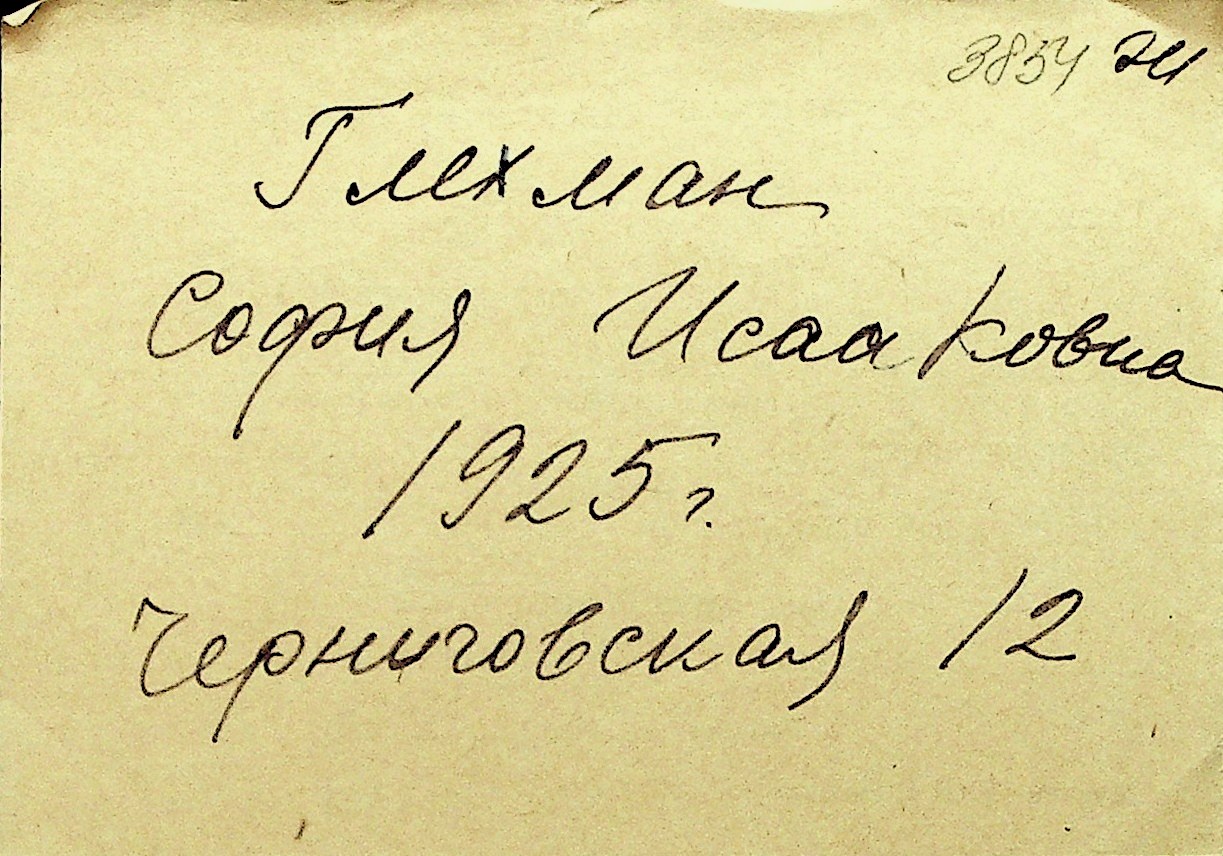 3854
Глехман
София Исааковна
1925 г.
Черниговская 12